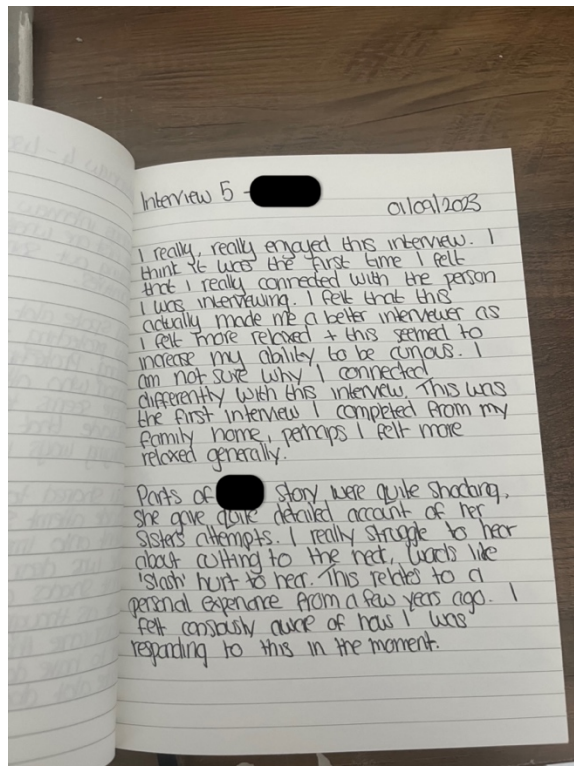 Interview 5 -
01/09/2023
I really, really enjoyed this interview. I
think it was the first time I felt
that I really connected with the person
I was interviewing. I felt that this
actually made me a better interviewer as
I felt more relaxed + this seemed to
increase my ability to be curious. I
am not sure why I connected
differently with this interview. This was
the first interview I completed from my
family home, perhaps I felt more
relaxed generally.
Parts of story were quite shocking,
she gave quite detailed account of her
sisters attempts. I really struggle to hear
about cutting to the neck, words like
'slash' hurt to hear. This relates to a
personal experience from a few years ago. I
felt consously aware of how I was
responding to this in the moment.